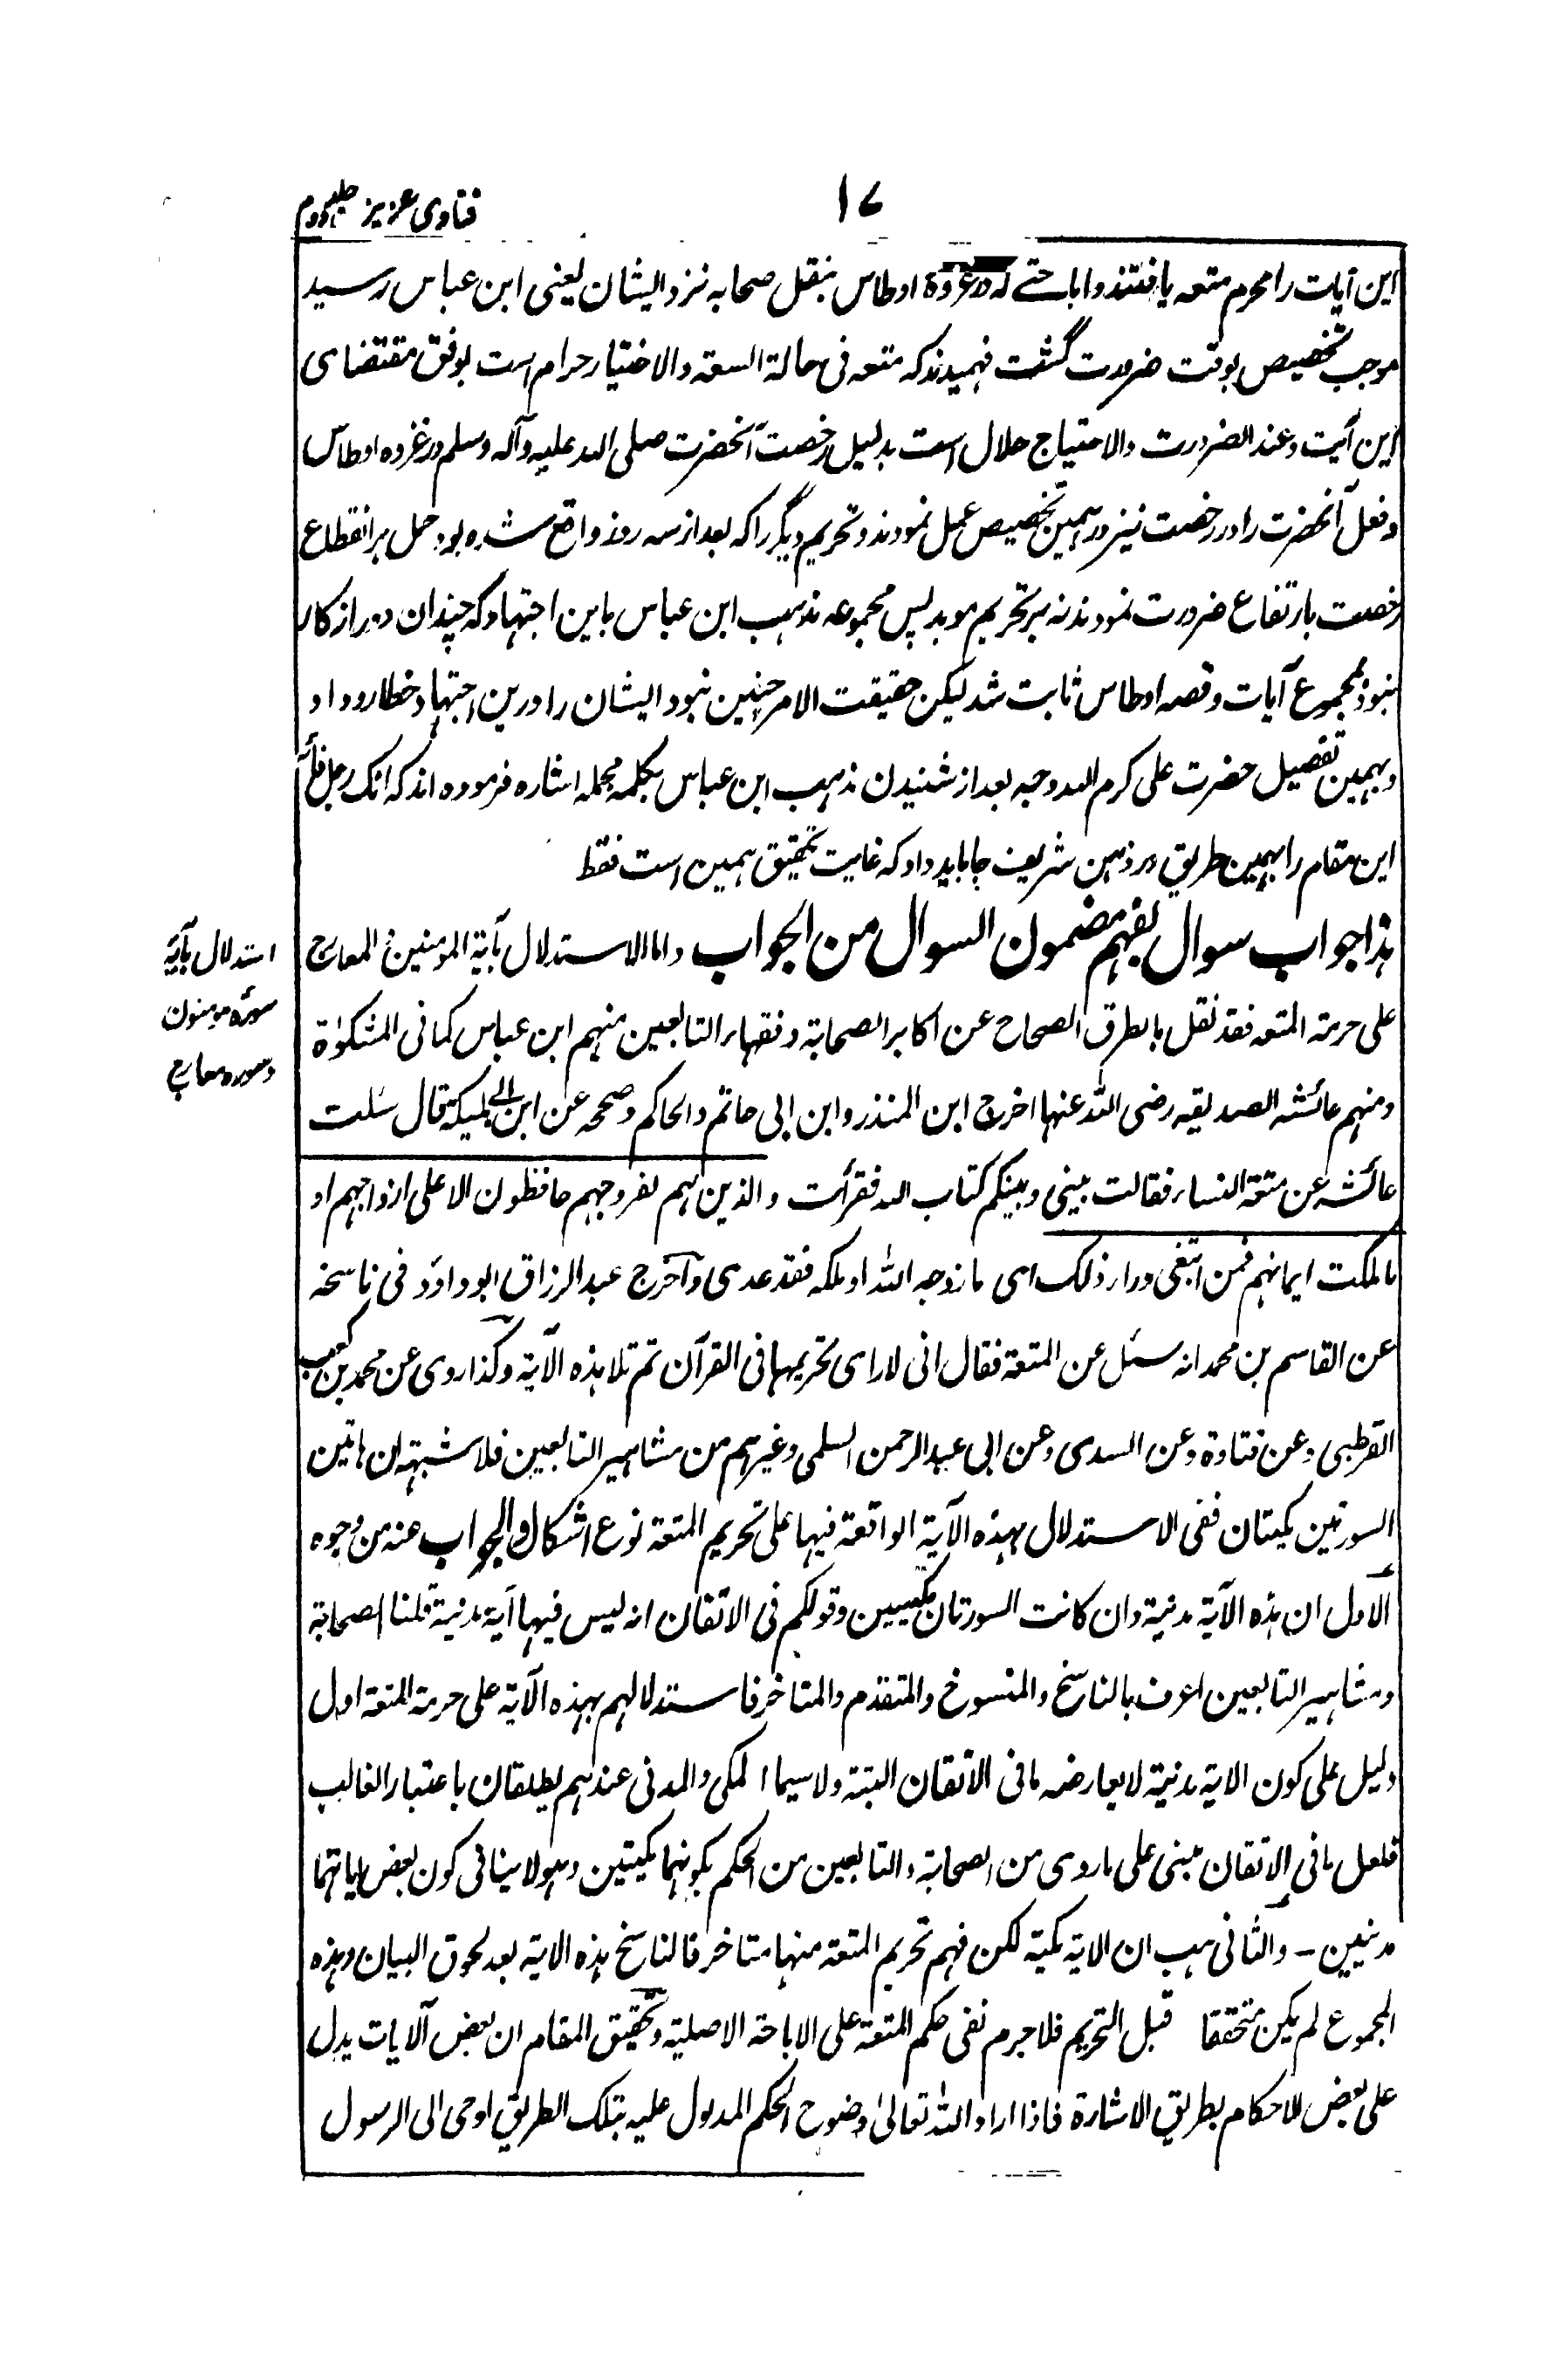 ۱۷
فتاوی عزیز جلد دوم
این آیات را محرم متعه یافتند و اباحتے که در غزوة اوطاس بنقل صحابه نزد ایشان یعنی ابن عباس رسید
موجب تخصیص بوقت ضرورت گشت فهمیدند که متعه فی حالة السعة والاختیار حرام است بوفق مقتضای
این آیت و عند الضرورت والاحتیاج حلال است بدلیل رخصت آنحضرت صلی الله علیه وآله وسلم در غزوه اوطاس
و فعل آنحضرت را در رخصت نیز در همین تخصیص عمل نمودند و تحریم دیگر را که بعد از سه روز واقع شده بود حمل بر انقطاع
رخصت بارتفاع ضرورت نمودند نه بر تحریم موبد پس مجموعه مذهب ابن عباس باین اجتهاد که چندان دور از کار
نبود بمجموع آیات و قصه اوطاس ثابت شد لیکن حقیقت الامر چنین نبود ایشان را درین اجتهاد خطا رو داد
و بهمین تفصیل حضرت علی کرم الله وجهه بعد از شنیدن مذهب ابن عباس بکلمه مجمله اشاره فرموده اند که انک رجل تائه
این مقام را بهمین طریق در ذهن شریف جا باید داد که غایت تحقیق همین است فقط
هذا جواب سوال یفهم مضمون السوال من الجواب واما الاستدلال بآیة المومنین والمعارج
علی حرمة المتعه فقد نقل بالطرق الصحاح عن اکابر الصحابة وفقهاء التابعین منهم ابن عباس کما فی المشکوٰة
ومنهم عائشه الصدیقه رضی الله عنها اخرج ابن المنذر وابن ابی حاتم والحاکم وصححه عن ابن ابی ملیکه قال سئلت
عائشه عن متعة النساء فقالت بینی وبینکم کتاب الله فقرأت والذین هم لفروجهم حافظون الا علی ازواجهم او
ما ملکت ایمانهم فمن ابتغی وراء ذلک ای ما زوجه الله او ملکه فقد عدی واخرج عبد الرزاق ابو داود فی ناسخه
عن القاسم بن محمد انه سئل عن المتعة فقال انی لا رای تحریمها فی القرآن ثم تلا هذه الآیة وکذا روی عن محمد بن کعب
القرطبی وعن قتادة وعن السدی وعن ابی عبد الرحمن السلمی وغیرهم من مشاهیر التابعین فلا شبهة ان هاتین
السورتین مکیتان ففی الاستدلال بهذه الآیة الواقعة فیها علی تحریم المتعة نوع اشکال والجواب عنه من وجوه
الاول ان هذه الآیة مدنیة وان کانت السورتان مکیتین وقولکم فی الاتقان انه لیس فیها آیة مدنیة قلنا الصحابة
ومشاهیر التابعین اعرف بالناسخ والمنسوخ والمتقدم والمتاخر فاستدلالهم بهذه الآیة علی حرمة المتعة اول
دلیل علی کون الایة مدنیة لا یعارضه ما فی الاتقان البتة ولا سیما المکی والمدنی عندهم یطلقان باعتبار الغالب
فلعل ما فی الاتقان مبنی علی ما روی من الصحابة والتابعین من الحکم بکونهما مکیتین وهو لا ینافی کون بعض ایاتهما
مدنیین - والثانی هب ان الایة مکیة لکن فهم تحریم المتعة منها متاخر فالناسخ هذه الایة بعد لحوق البیان وهذه
المجموع لم یکن متحققا قبل التحریم فلا جرم نفی حکم المتعة علی الاباحة الاصلیة وتحقیق المقام ان بعض الآیات یدل
علی بعض الاحکام بطریق الاشارة فاذا اراد الله تعالیٰ وضوح الحکم المدلول علیه بتلک الطریق اوحی الی الرسول
استدلال بآیة
سورة مومنون
و سوره معارج